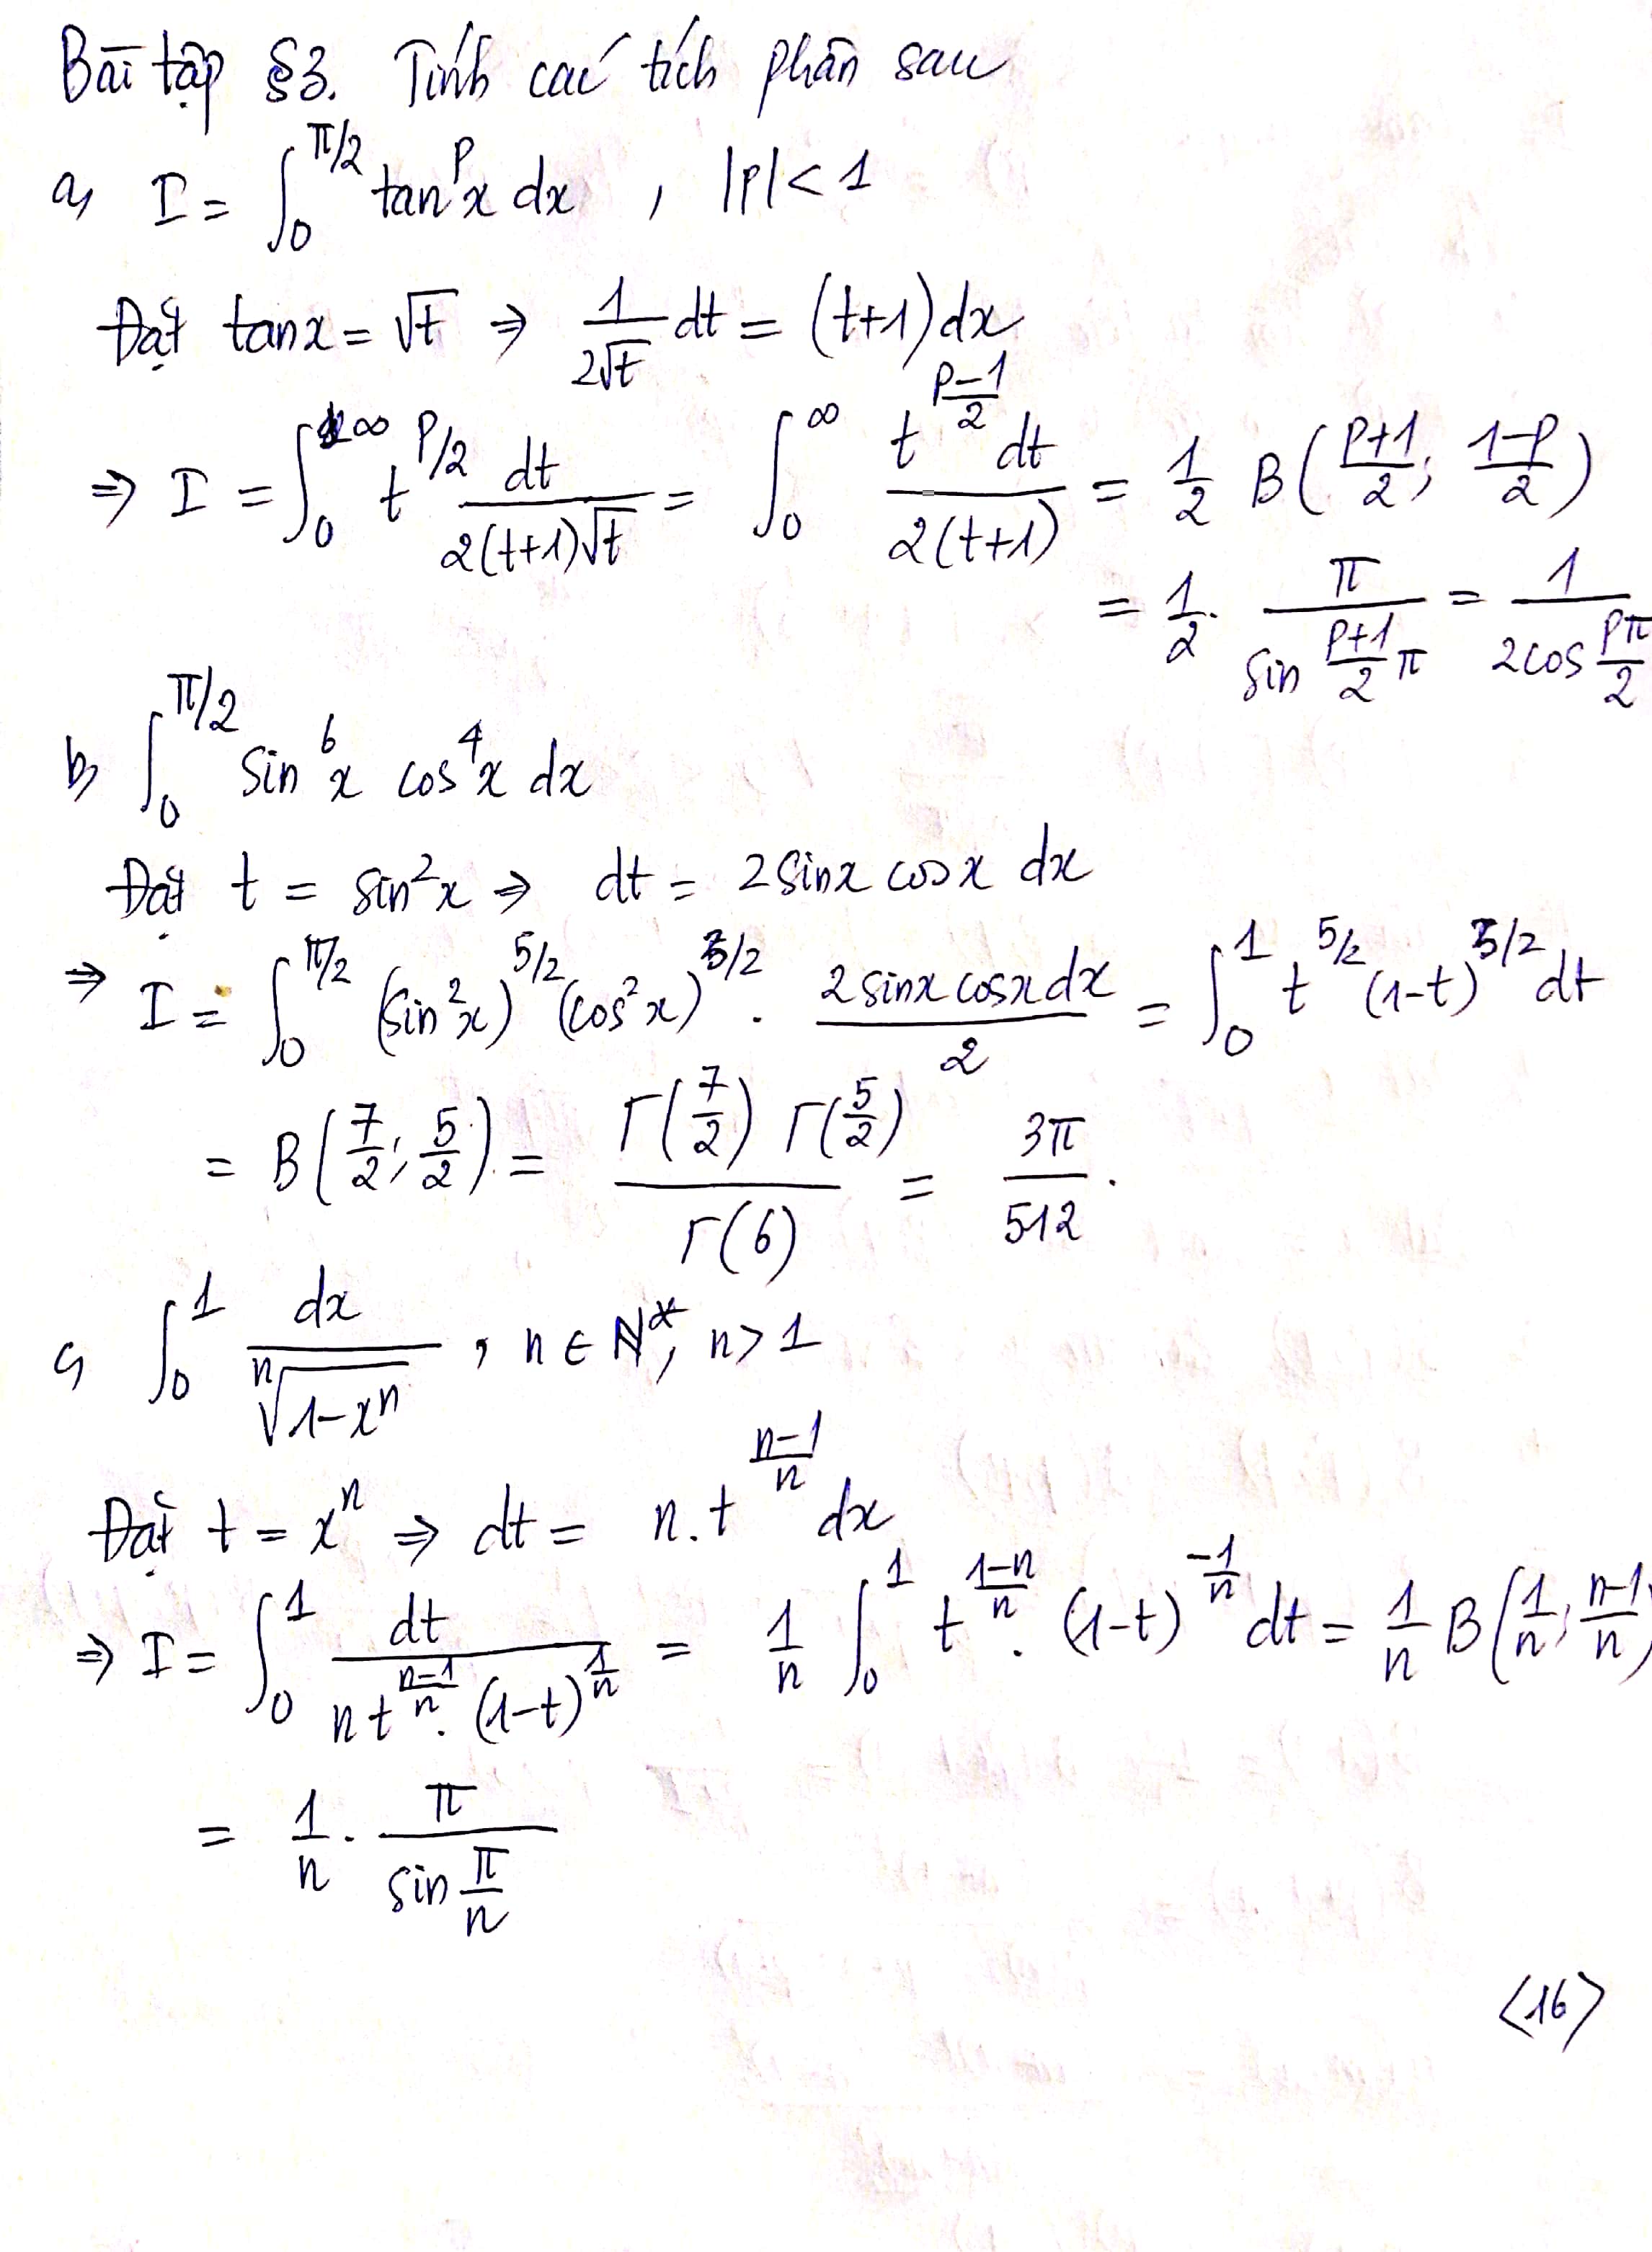 Bài tập §3. Tính các tích phân sau
a, I = ∫₀^{π/2} tan^p x dx , |p| < 1
Đặt tanx = √t ⇒ 1/(2√t) dt = (t+1) dx
⇒ I = ∫₀^{∞} t^{p/2} dt/(2(t+1)√t) = ∫₀^{∞} t^{(p-1)/2} dt/(2(t+1)) = 1/2 B((p+1)/2; (1-p)/2)
= 1/2 . π/(sin (p+1)/2 π) = 1/(2cos pπ/2)
b, ∫₀^{π/2} sin⁶x cos⁴x dx
Đặt t = sin²x ⇒ dt = 2 sinx cosx dx
⇒ I = ∫₀^{π/2} (sin²x)^{5/2} (cos²x)^{3/2} . (2 sinx cosx dx)/2 = ∫₀^1 t^{5/2} (1-t)^{3/2} dt
= B(7/2; 5/2) = Γ(7/2) Γ(5/2) / Γ(6) = 3π/512 .
c, ∫₀^1 dx/ⁿ√(1-xⁿ) , n ∈ ℕ*, n > 1
Đặt t = xⁿ ⇒ dt = n.t^{(n-1)/n} dx
⇒ I = ∫₀^1 dt/(n t^{(n-1)/n} . (1-t)^{1/n}) = 1/n ∫₀^1 t^{(1-n)/n} . (1-t)^{-1/n} dt = 1/n B(1/n; (n-1)/n)
= 1/n . π/(sin π/n)
<16>